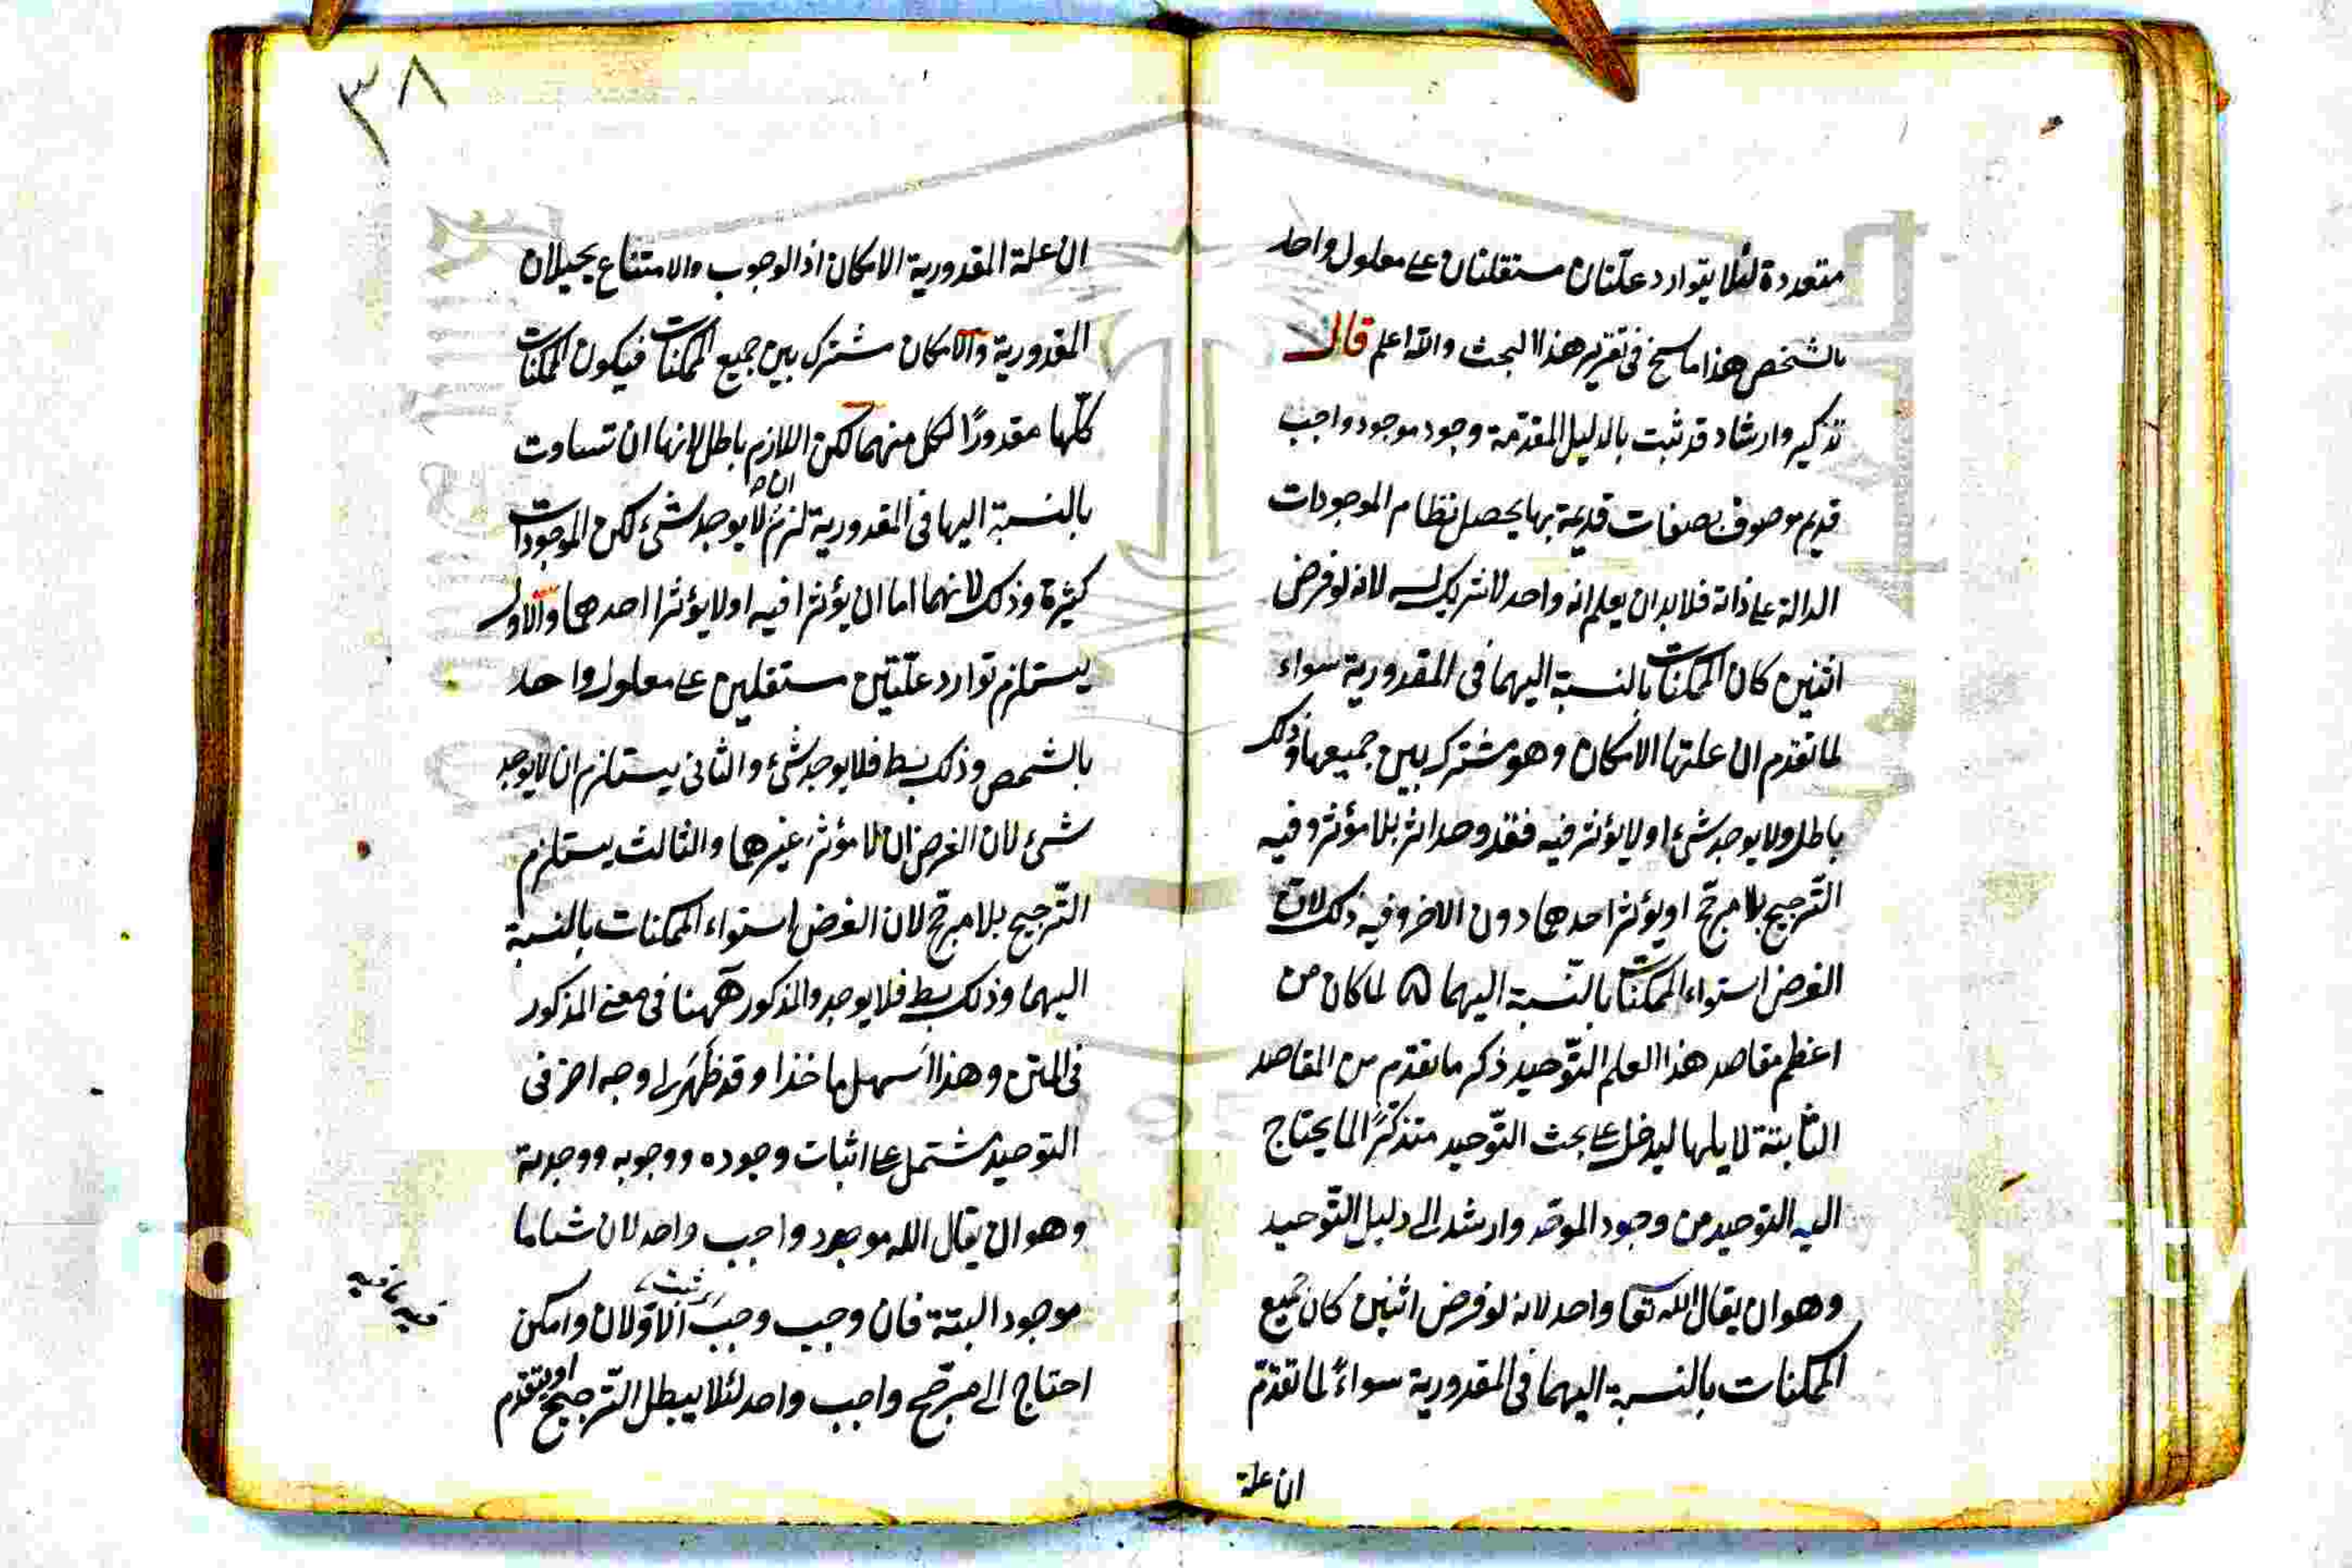 متعددة لئلا يتوارد علتان مستقلتان على معلول واحد
بالشخص هذا ما سنح فى تقرير هذا البحث والله اعلم قال
تذكير وارشاد قد ثبت بالدليل المقدمة وجود موجود واجب
قديم موصوف بصفات قديمة بها يحصل نظام الموجودات
الدالة على ذاته فلا بد ان يعلم انه واحد لا شريك له لانه لو فرض
اثنين كان الممكنات بالنسبة اليهما فى المقدورية سواء
لما تقدم ان علتها الامكان وهو مشترك بين جميعها وذلك
باطل ولا يوجد شىء او لا يؤثر فيه فقد وجد اثر بلا مؤثر وفيه
الترجيح بلا مرجح او يؤثر احدهما دون الاخر وفيه ذلك لان
الفرض استواء الممكنات بالنسبة اليهما ۵ لما كان من
اعظم مقاصد هذا العلم التوحيد ذكر ما تقدم من المقاصد
الثابتة لا يلها ليدخل على بحث التوحيد متذكرا لما يحتاج
اليه التوحيد من وجود الموحد وارشد الى دليل التوحيد
وهو ان يقال الله تعا واحد لانه لو فرض اثنين كان جميع
الممكنات بالنسبة اليهما فى المقدورية سواءً لما تقدم
ان علة
٣٨
ان علة المقدورية الامكان اذ الوجوب والامتناع يحيلان
المقدورية والامكان مشترك بين جميع الممكنات فيكون الممكنات
كلها مقدورًا لكل منهما لكن اللازم باطل لانها ان تساوت
بالنسبة اليها فى المقدورية لزم ان لا يوجد شىء لكن الموجودات
كثيرة وذلك لانهما اما ان يؤثرا فيه او لا يؤثرا احدهما والاول
يستلزم توارد علتين مستقلين على معلول واحد
بالشخص وذلك بط فلا يوجد شىء والثانى يستلزم ان لا يوجد
شىء لان الفرض ان لا مؤثر غيرهما والثالث يستلزم
الترجيح بلا مرجح لان الفرض استواء الممكنات بالنسبة
اليهما وذلك بط فلا يوجد والمذكور ههنا فى معنى المذكور
فى المتن وهذا اسهل ماخذا وقد ظهر لى وجه اخر فى
التوحيد مشتمل على اثبات وجوده ووجوبه ووحدته
وهو ان يقال الله موجود واجب واحد لان شيئا ما
موجود البتة فان وجب وجب ثبت الاولان وامكن
احتاج الى مرجح واجب واحد لئلا يبطل الترجيح او يتقدم
فيه ما فيه